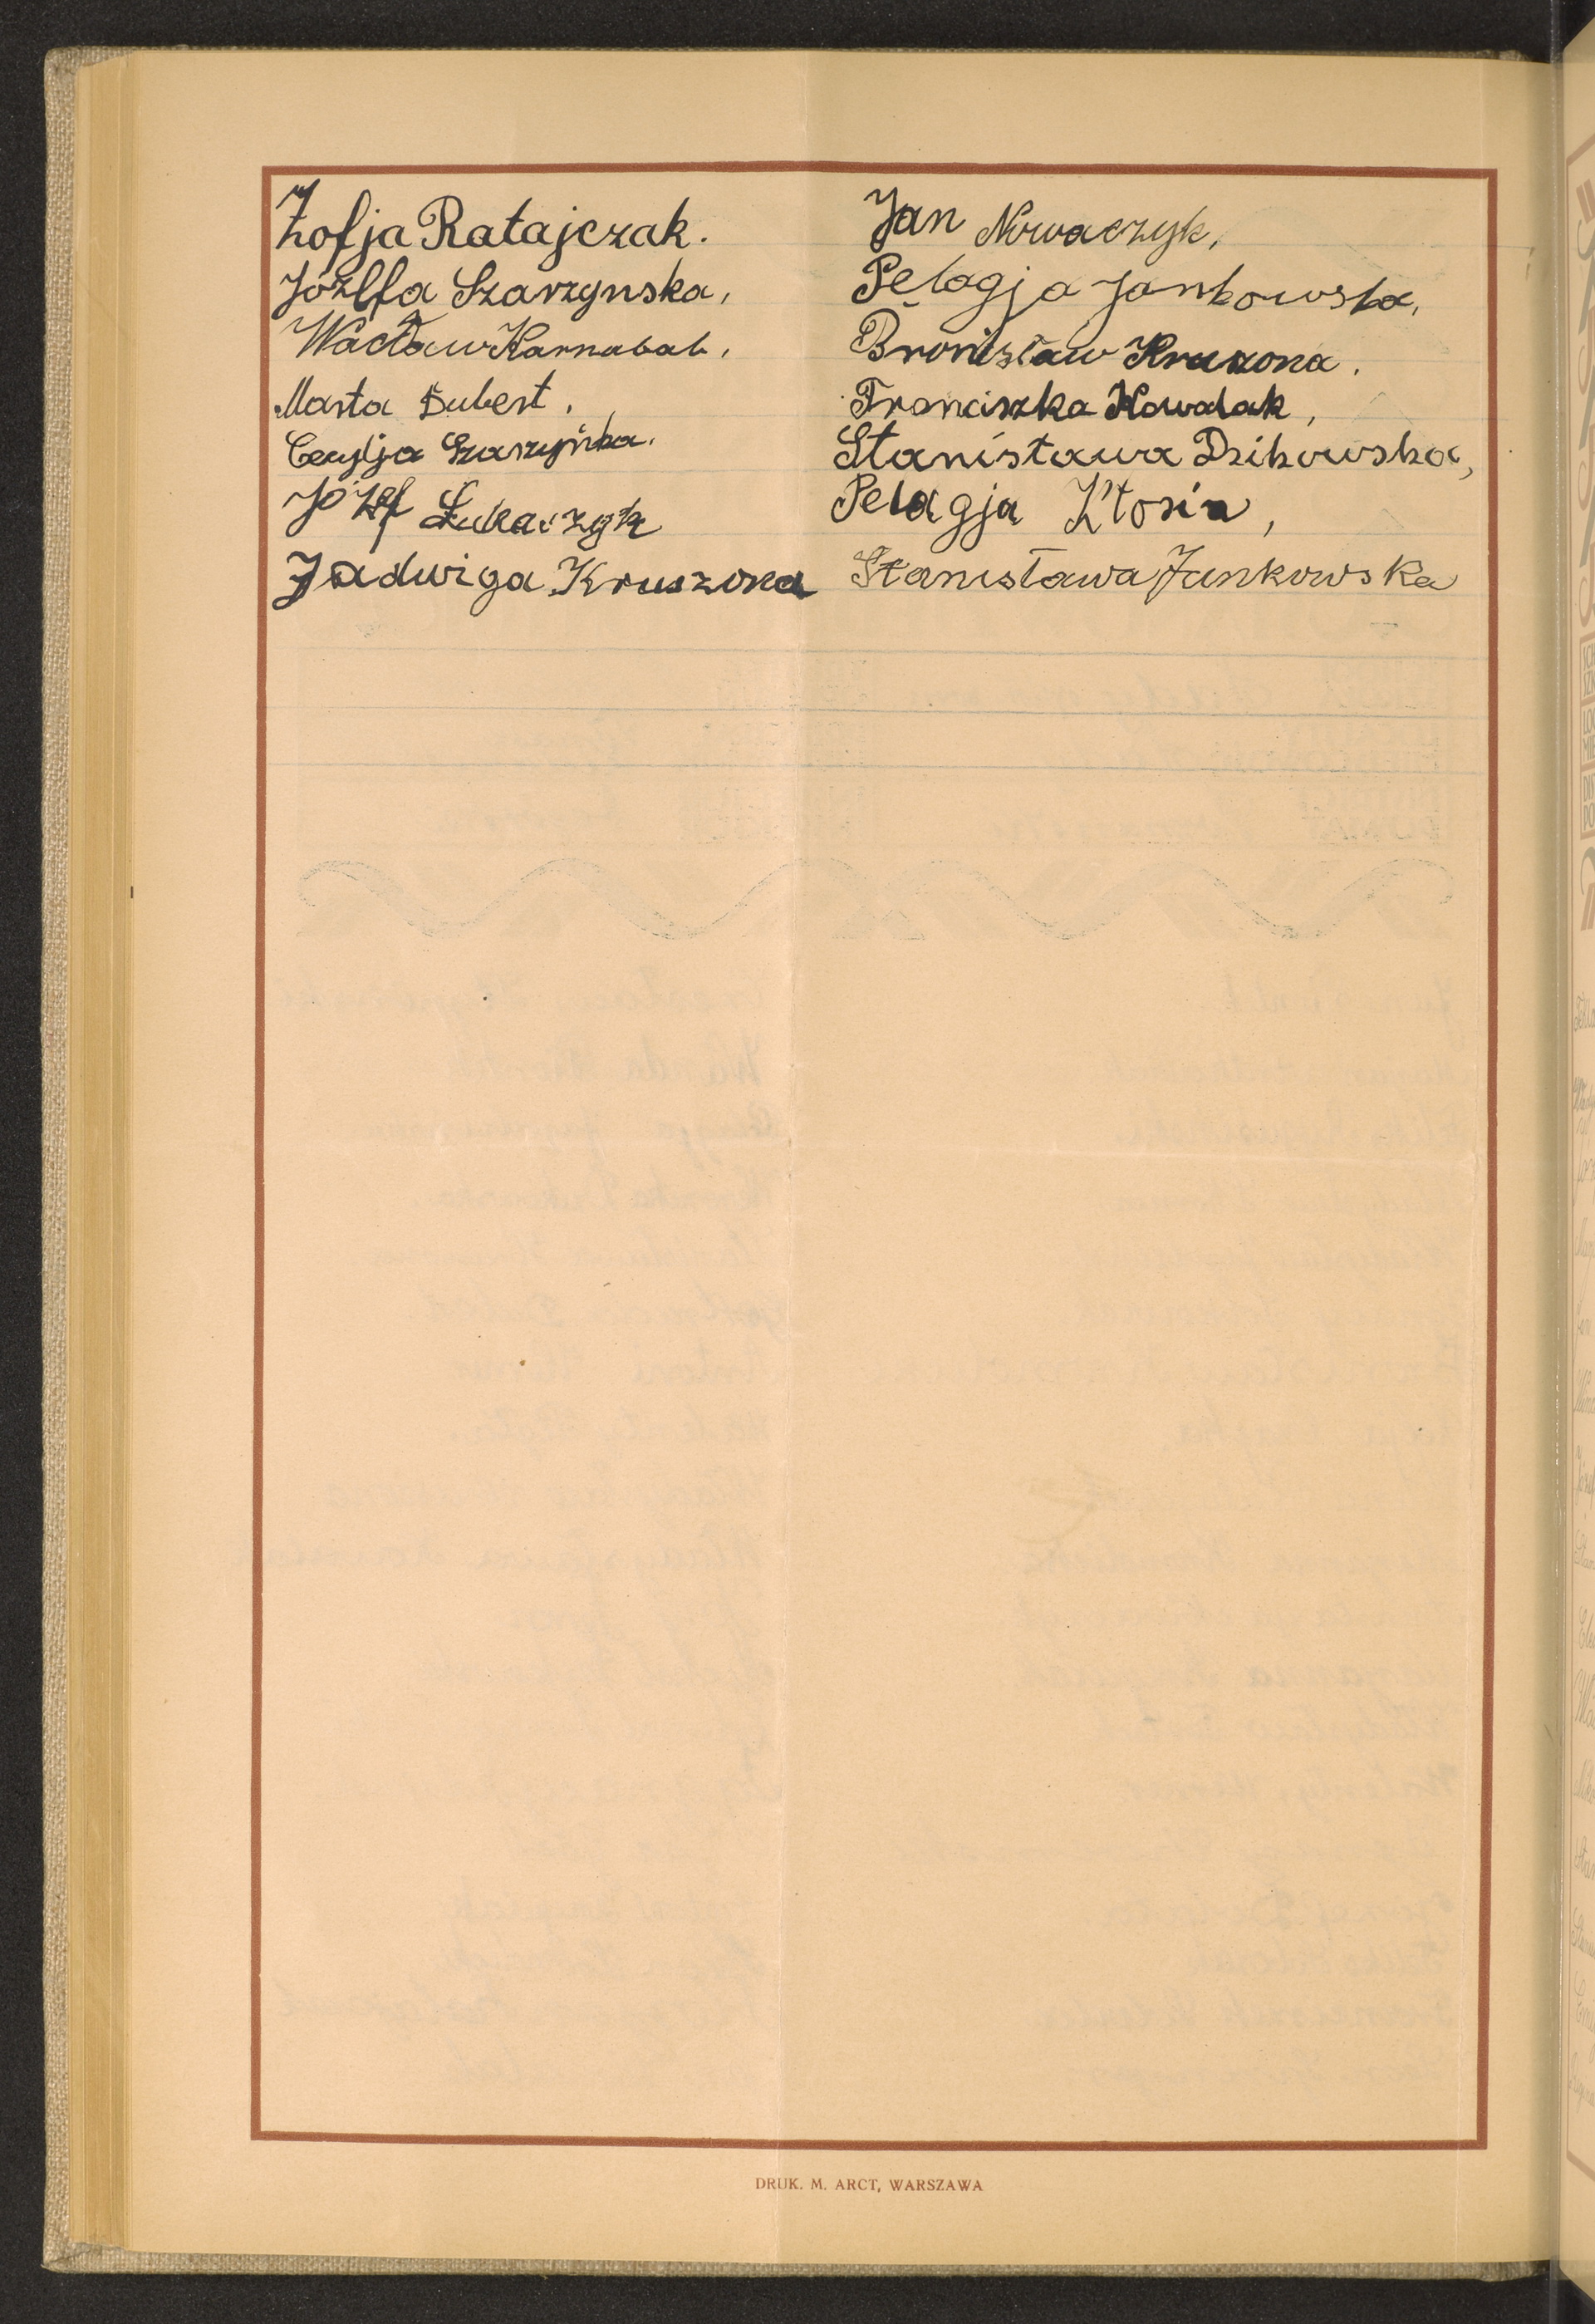 Zofja Ratajczak.
Józefa Szarzynska,
Wacław Karnabal,
Marta Dubert,
Cecylja Szaszyńska.
Józef Łukaczyk
Jadwiga Kruszona
Jan Nowaczyk,
Pelagja Jankowska,
Bronisław Kruzona.
Franciszka Kowalak,
Stanisława Dzikowska,
Pelagja Ktosin,
Stanisława Jankowska
DRUK. M. ARCT, WARSZAWA